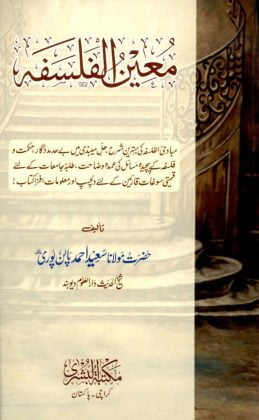 معین الفلسفہ
مبادئ الفلسفہ کی بہترین شرح، حل میبذی میں بے حد مددگار، حکمت و
فلسفہ کے پیچیدہ مسائل کی عمدہ وضاحت، طلبۂ جامعات کے لئے
قیمتی سوغات، قارئین کے لئے دلچسپ اور معلومات افزا کتاب!
تالیف
حضرت مولانا سعید احمد پالن پوری
شیخ الحدیث دارالعلوم دیوبند
مکتبۃ البشریٰ
کراچی - پاکستان